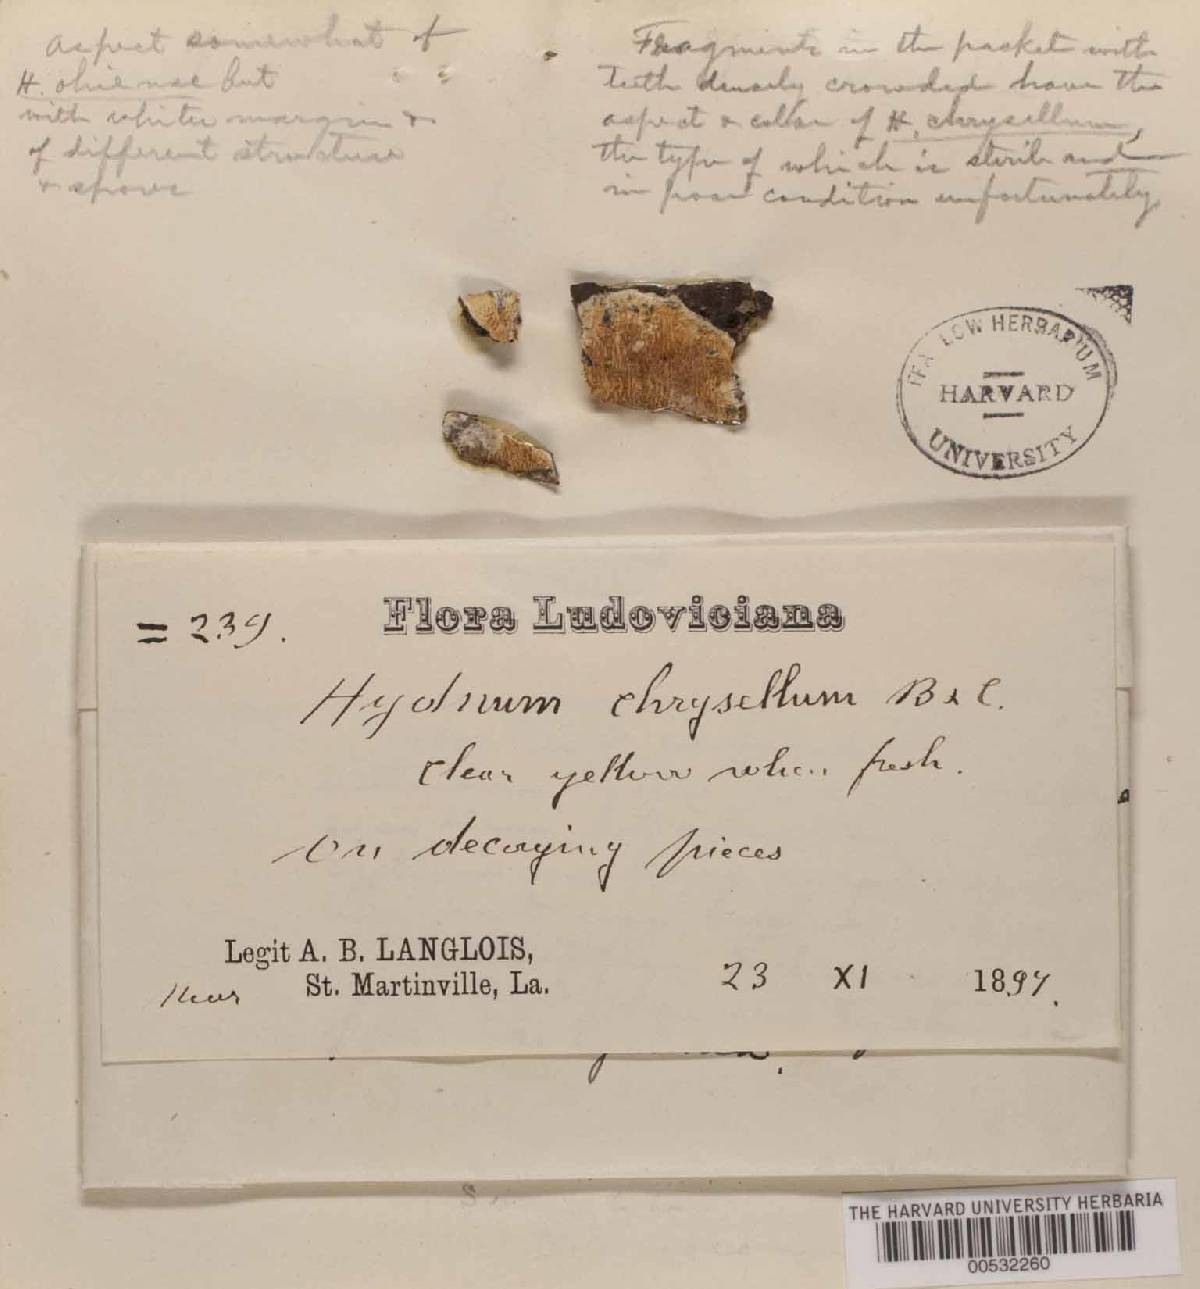 aspect somewhat of
H. ohiense but
with whiter margin &
of different structure
& spores
Fragments in the packet with
teeth densely crowded have the
aspect & color of H. chrysellum,
the type of which is sterile and
in poor condition unfortunately
FARLOW HERBARIUM
HARVARD
UNIVERSITY
= 239.
Flora Ludoviciana
Hydnum chrysellum B & C.
clear yellow when fresh.
on decaying pieces
Legit A. B. LANGLOIS,
near St. Martinville, La.
23 XI 1897.
THE HARVARD UNIVERSITY HERBARIA
00532260